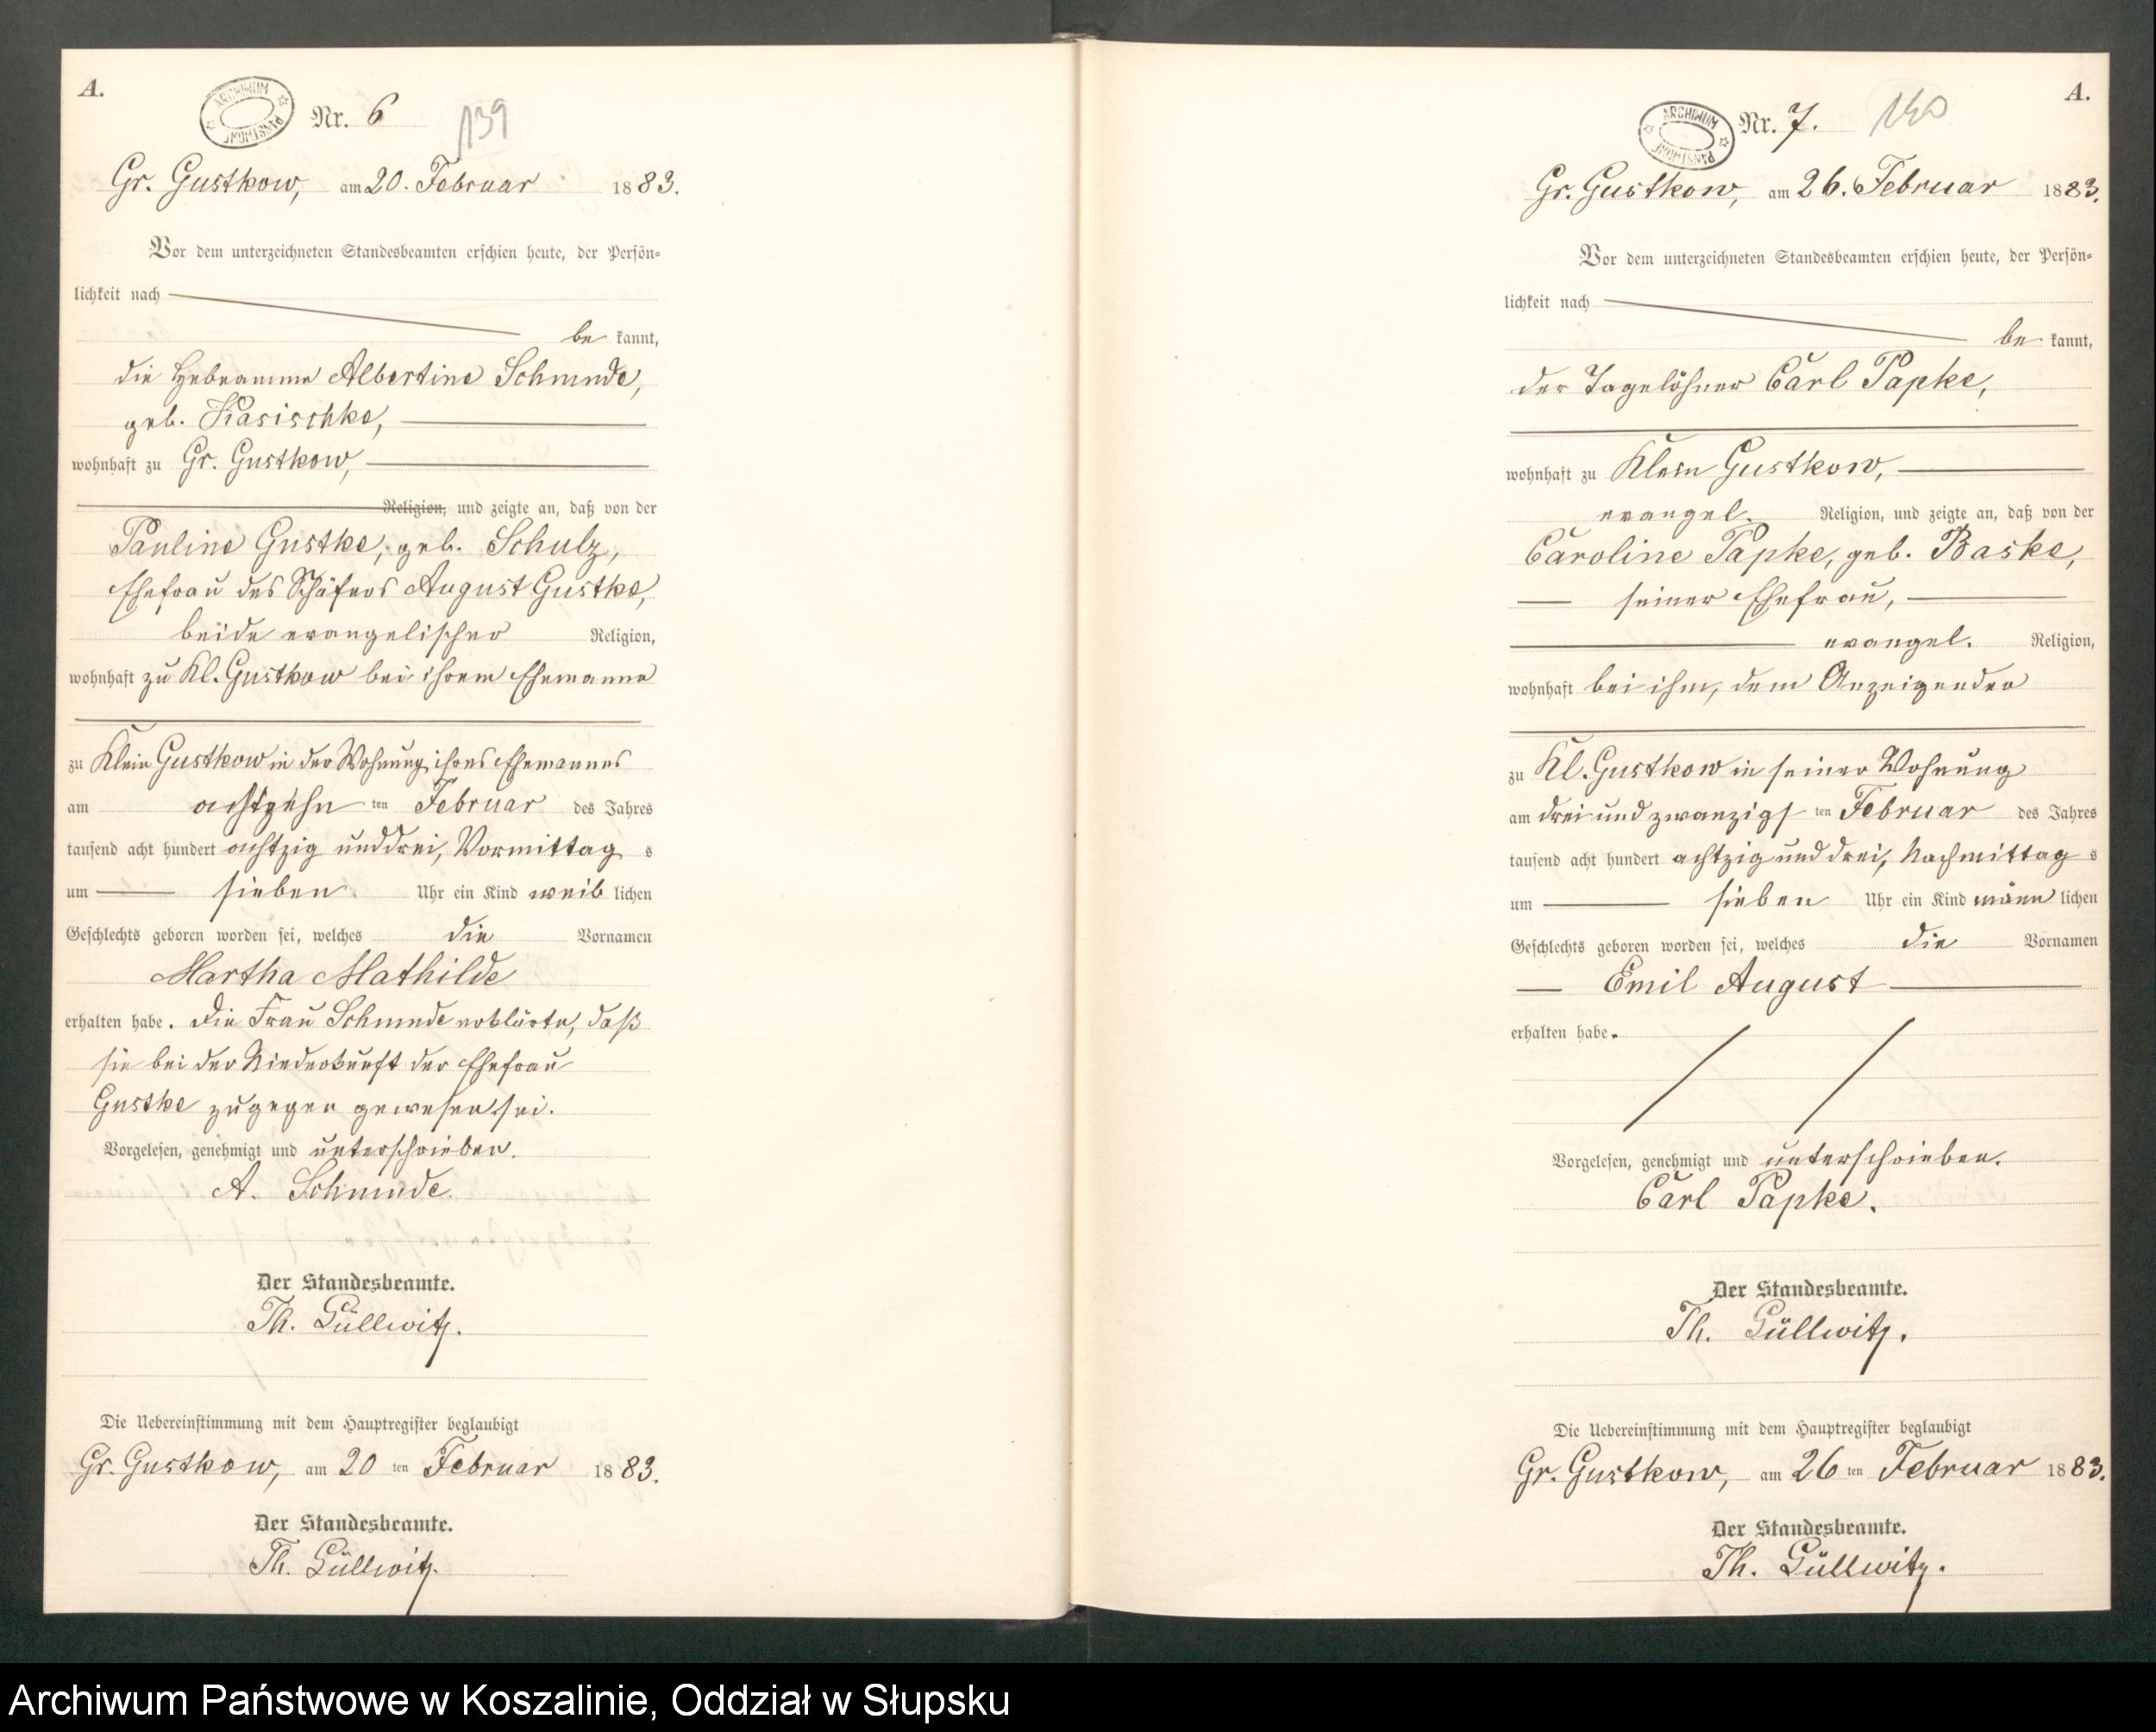 A.
ARCHIWUM PAŃSTWOWE
Nr. 6
139
Gr. Gustkow, am 20. Februar 1883.
Vor dem unterzeichneten Standesbeamten erschien heute, der Persön-
lichkeit nach
be kannt,
die Hebeamme Albertine Schmude,
geb. Kasischke,
wohnhaft zu Gr. Gustkow,
Religion, und zeigte an, daß von der
Pauline Gustke, geb. Schulz,
Ehefrau des Schäfers August Gustke,
beide evangelischer Religion,
wohnhaft zu Kl. Gustkow bei ihrem Ehemanne
zu Klein Gustkow in der Wohnung ihres Ehemannes
am achtzehn ten Februar des Jahres
tausend acht hundert achtzig und drei, Vormittag s
um sieben Uhr ein Kind weib lichen
Geschlechts geboren worden sei, welches die Vornamen
Martha Mathilde
erhalten habe. Die Frau Schmude erklärte, daß
sie bei der Niederkunft der Ehefrau
Gustke zugegen gewesen sei.
Vorgelesen, genehmigt und unterschrieben.
A. Schmude.
Der Standesbeamte.
Th. Güllwitz.
Die Uebereinstimmung mit dem Hauptregister beglaubigt
Gr. Gustkow, am 20 ten Februar 1883.
Der Standesbeamte.
Th. Güllwitz.
A.
ARCHIWUM PAŃSTWOWE
Nr. 7.
140
Gr. Gustkow, am 26. Februar 1883.
Vor dem unterzeichneten Standesbeamten erschien heute, der Persön-
lichkeit nach
be kannt,
der Tagelöhner Carl Papke,
wohnhaft zu Klein Gustkow,
evangel. Religion, und zeigte an, daß von der
Caroline Papke, geb. Baske,
seiner Ehefrau,
evangel. Religion,
wohnhaft bei ihm, dem Anzeigenden
zu Kl. Gustkow in seiner Wohnung
am drei und zwanzigs ten Februar des Jahres
tausend acht hundert achtzig und drei, Nachmittag s
um sieben Uhr ein Kind männ lichen
Geschlechts geboren worden sei, welches die Vornamen
Emil August
erhalten habe.
Vorgelesen, genehmigt und unterschrieben.
Carl Papke.
Der Standesbeamte.
Th. Güllwitz.
Die Uebereinstimmung mit dem Hauptregister beglaubigt
Gr. Gustkow, am 26 ten Februar 1883.
Der Standesbeamte.
Th. Güllwitz.
Archiwum Państwowe w Koszalinie, Oddział w Słupsku